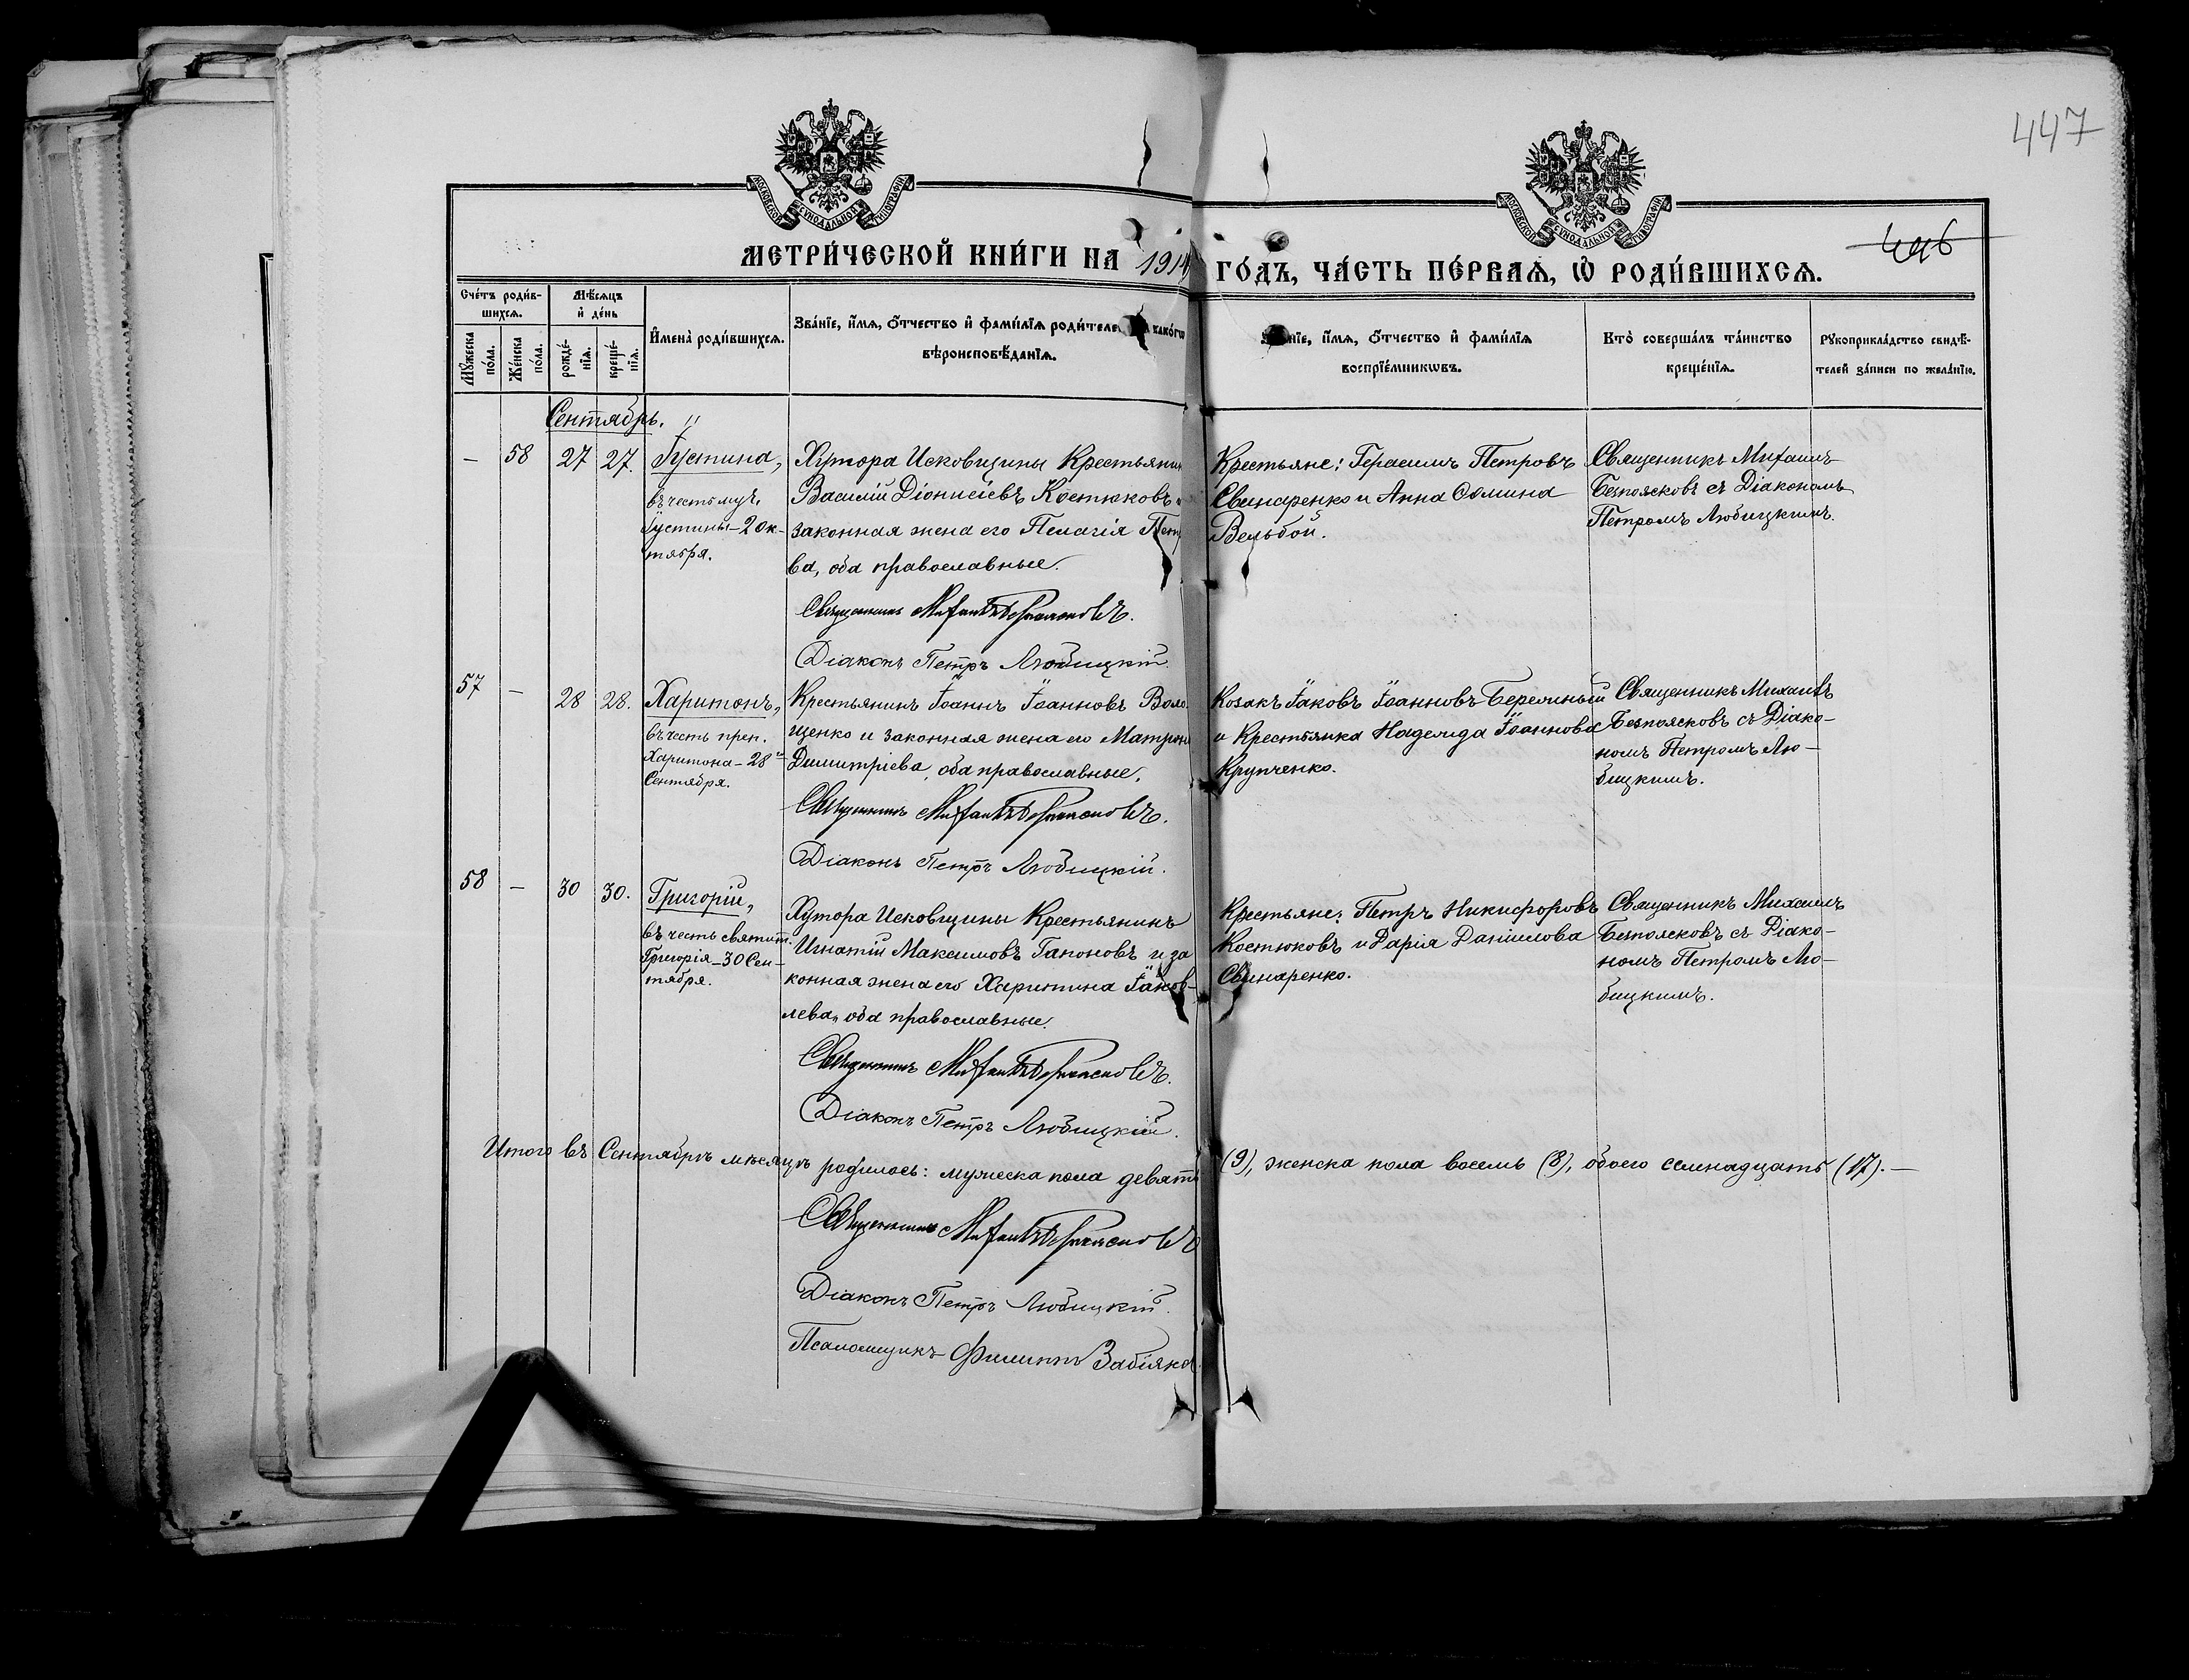 447
446
МОСКОВСКОЙ СѴНОДАЛЬНОЙ ТИПОГРАФІИ
МОСКОВСКОЙ СѴНОДАЛЬНОЙ ТИПОГРАФІИ
МЕТРИ́ЧЕСКОЙ КНИ́ГИ НА 191 ГО́ДЪ, ЧА́СТЬ ПЕ́РВАѦ, Ѡ҆ РОДИ́ВШИХСѦ.
Сче́тъ роди́в-
шихсѧ.
Мꙋ́жеска по́ла.
Же́нска по́ла.
Мѣ́сѧцъ
и҆ де́нь
рожде́-нїѧ.
креще́-нїѧ.
И҆мена̀ роди́вшихсѧ.
Зва́нїе, и҆́мѧ, ѻ҆́тчество и҆ фами́лїѧ роди́теле какого̀
вѣроисповѣ́данїѧ.
нїе, и҆́мѧ, ѻ҆́тчество и҆ фами́лїѧ
воспрїе́мникѡвъ.
Кто̀ соверша́лъ та́инство
креще́нїѧ.
Рꙋкоприкла́дство свидѣ́-
телей за́писи по жела́нїю.
Сентябрь.
– 58 27 27. Іустина,
въ честь муч.
Іустины – 2 Ок-
тября.
Хутора Исковщины Крестьянин
Василій Діонисіевъ Костюковъ и
законная жена его Пелагія Пет
ва, оба православные.
Священникъ Михаилъ Безпоясковъ.
Діаконъ Петръ Любицкій.
Крестьяне: Герасимъ Петровъ
Свинаренко и Анна Сомина
Вельбой.
Священникъ Михаилъ
Безпоясковъ съ Діакономъ
Петромъ Любицкимъ.
57 – 28 28. Харитонъ,
въ честь преп.
Харитона – 28
Сентября.
Крестьянинъ Іоаннъ Іоанновъ Воло
щенко и законная жена его Матрона
Димитріева, оба православные.
Священникъ Михаилъ Безпоясковъ.
Діаконъ Петръ Любицкій.
Козакъ Іаковъ Іоанновъ
и Крестьянка Надежда Іоаннова
Крупченко.
Священникъ Михаилъ
Безпоясковъ съ Діако-
номъ Петромъ Лю-
бицкимъ.
58 – 30 30. Григорій,
въ честь святит.
Григорія – 30 Сен-
тября.
Хутора Исковщины Крестьянинъ
Игнатій Максимовъ Гапоновъ и за
конная жена его Харитина Іаков-
лева, оба православные.
Священникъ Михаилъ Безпоясковъ.
Діаконъ Петръ Любицкій.
Крестьяне: Петръ Никифоровъ
Костюковъ и Дарія Даніилова
Свинаренко.
Священникъ Михаилъ
Безпоясковъ съ Діако-
номъ Петромъ Лю-
бицкимъ.
Итого въ Сентябрѣ мѣсяцѣ родилось: мужеска пола девять (9), женска пола восемь (8), обоего семнадцать (17). –
Священникъ Михаилъ Безпоясковъ
Діаконъ Петръ Любицкій.
Псаломщикъ Филиппъ Забіяка.